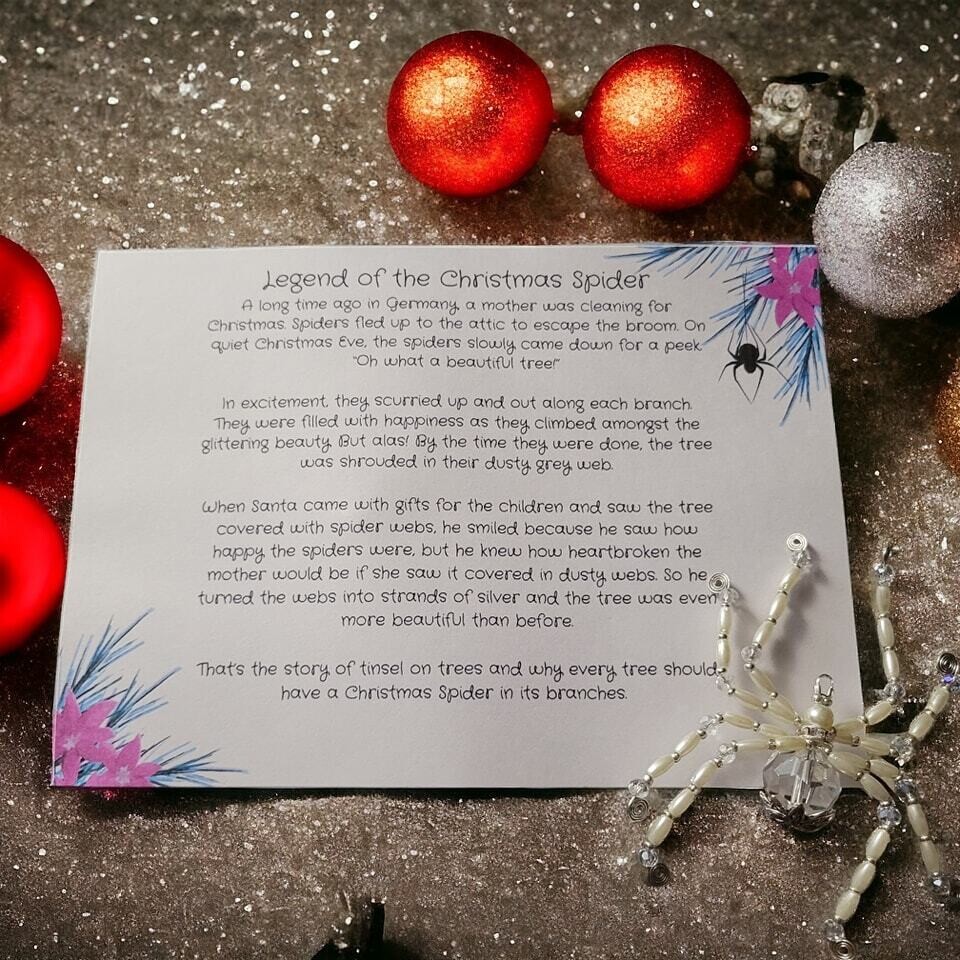 Legend of the Christmas Spider
A long time ago in Germany, a mother was cleaning for
Christmas. Spiders fled up to the attic to escape the broom. On
quiet Christmas Eve, the spiders slowly came down for a peek.
"Oh what a beautiful tree!"
In excitement, they scurried up and out along each branch.
They were filled with happiness as they climbed amongst the
glittering beauty. But alas! By the time they were done, the tree
was shrouded in their dusty grey web.
When Santa came with gifts for the children and saw the tree
covered with spider webs, he smiled because he saw how
happy the spiders were, but he knew how heartbroken the
mother would be if she saw it covered in dusty webs. So he
turned the webs into strands of silver and the tree was even
more beautiful than before.
That's the story of tinsel on trees and why every tree should
have a Christmas Spider in its branches.